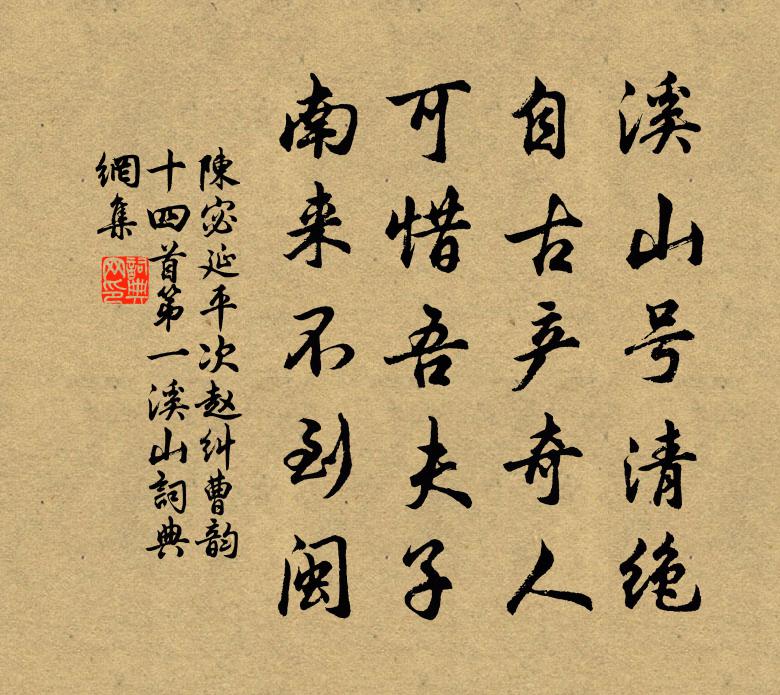 溪山号清绝
自古产奇人
可惜吾夫子
南来不到闽
陳宓延平次赵纠曹韵
十四首第一溪山詞典
網集
詞典
网印